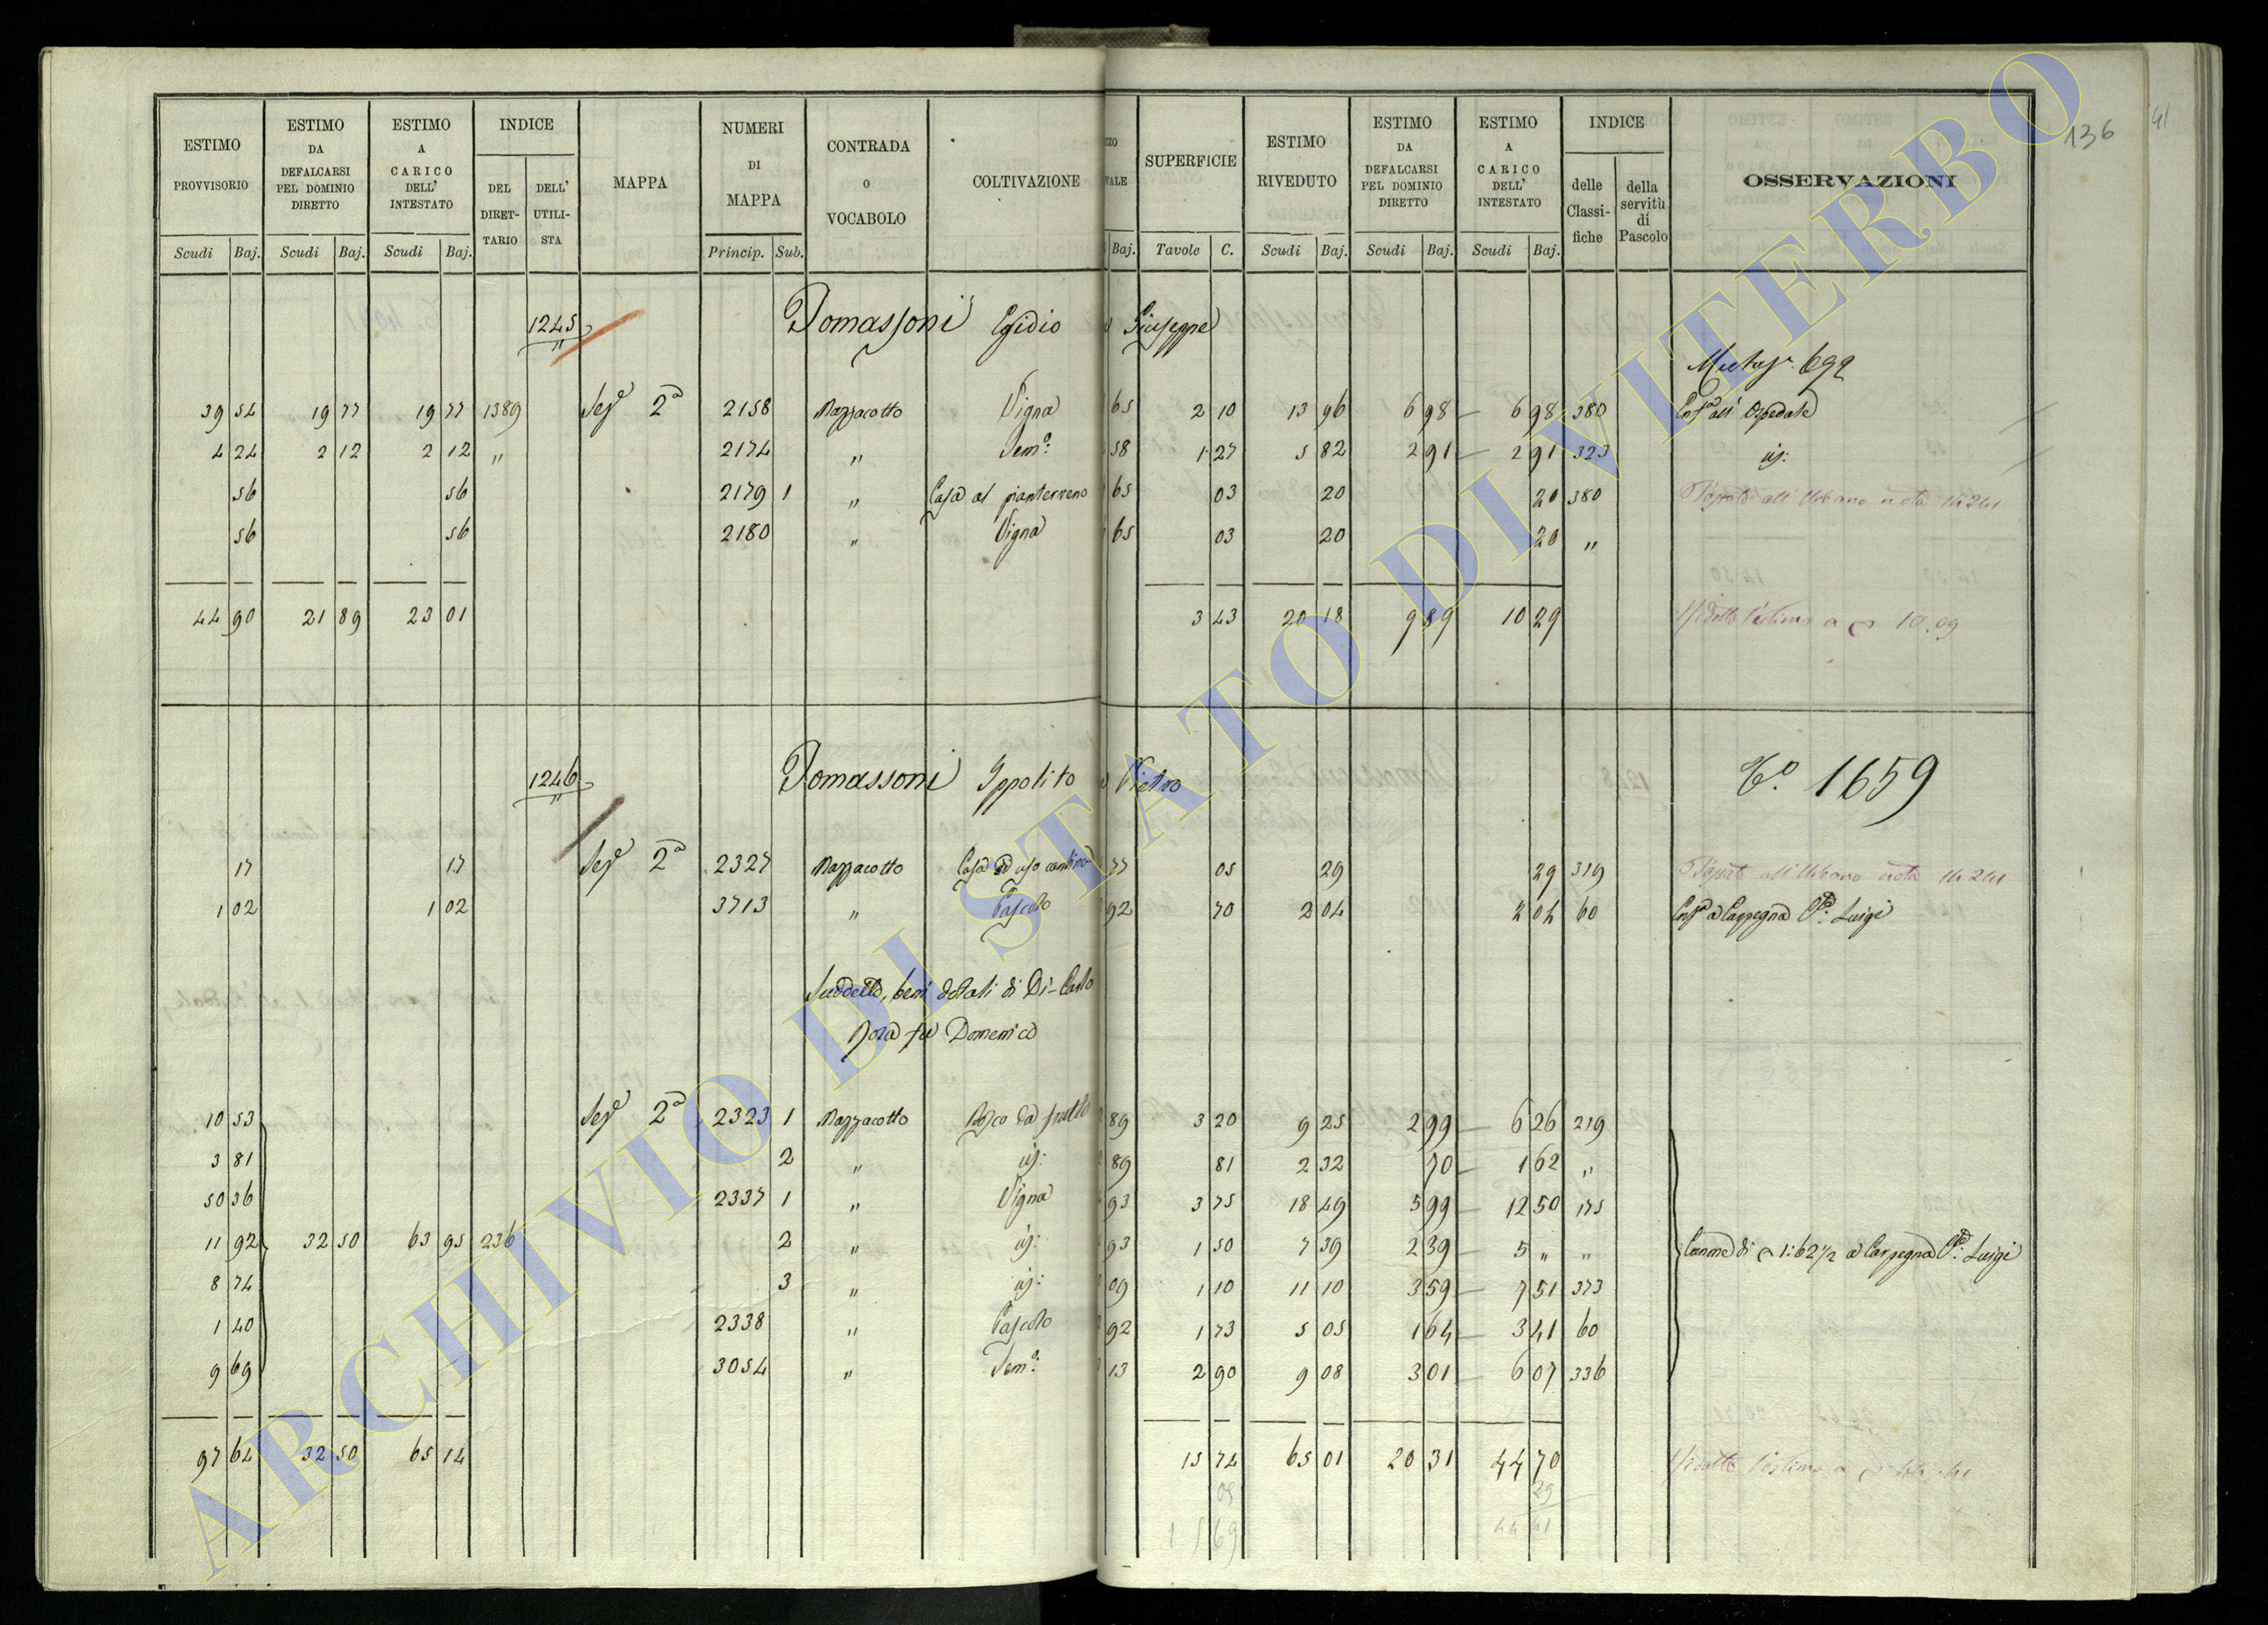 136
41
ESTIMO PROVVISORIO | ESTIMO DA DEFALCARSI PEL DOMINIO DIRETTO | ESTIMO A CARICO DELL' INTESTATO | INDICE DEL DIRETTARIO | DELL' UTILISTA | MAPPA | NUMERI DI MAPPA | CONTRADA O VOCABOLO | COLTIVAZIONE | SUPERFICIE | ESTIMO RIVEDUTO | ESTIMO DA DEFALCARSI PEL DOMINIO DIRETTO | ESTIMO A CARICO DELL' INTESTATO | INDICE delle Classifiche | della servitù di Pascolo | OSSERVAZIONI
Scudi Baj. Scudi Baj. Scudi Baj. Princip. Sub. Baj. Tavole C. Scudi Baj. Scudi Baj. Scudi Baj.
1245 Tomassoni Egidio Giuseppe
699
39 54 19 77 19 77 1389 Sez.e 2a 2158 Mazzacotto Vigna 65 2 10 13 96 6 98 6 98 380 all' Ospedale
4 24 2 12 2 12 " 2174 " Sem.o 58 1 27 5 82 2 91 2 91 323
56 56 2179 1 " Casa al pianterreno 65 03 20 20 380 all'Urbano nota
56 56 2180 " Vigna 65 03 20 20 "
44 90 21 89 23 01 3 43 20 18 9 89 10 29 Ridotto l'estimo a 10.09
1246 Tomassoni Ippolito Pietro
C.o 1659
17 17 Sez.e 2a 2327 Mazzacotto Casa ad uso cantina 77 05 29 29 319 all'Urbano nota
1 02 1 02 3713 " Pascolo 92 70 2 04 2 04 60 a Carpegna Luigi
Suddetto, beni dotali di Di-Carlo
fu Domenico
10 53 Sez.e 2a 2323 1 Mazzacotto Bosco da frutto 89 3 20 9 25 2 99 6 26 219
3 81 2 " 89 81 2 32 70 1 62 "
50 36 2337 1 " Vigna 93 3 75 18 49 5 99 12 50 175
11 92 32 50 63 95 236 2 " 93 1 50 7 39 2 39 5 " " Canone di 1:62 1/2 a Carpegna Luigi
8 74 3 " 09 1 10 11 10 3 59 7 51 373
1 40 2338 " Pascolo 92 1 73 5 05 1 64 3 41 60
9 69 3054 " Sem.o 13 2 90 9 08 3 01 6 07 336
97 64 32 50 65 14 15 74 65 01 20 31 44 70 Ridotto l'estimo a
05 29
15 69 44 41
ARCHIVIO DI STATO DI VITERBO